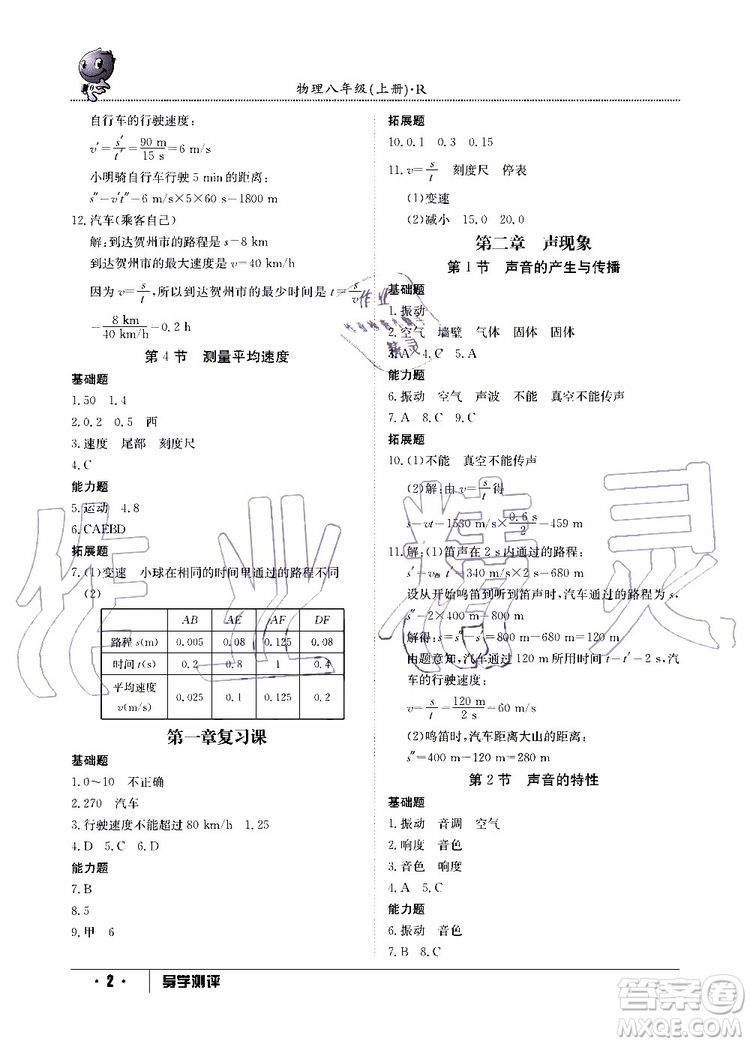 物理八年级(上册)·R
自行车的行驶速度:
v′=s′/t′=90 m/15 s=6 m/s
小明骑自行车行驶 5 min 的距离:
s″=v′t″=6 m/s×5×60 s=1800 m
12.汽车(乘客自己)
解:到达贺州市的路程是 s=8 km
到达贺州市的最大速度是 v=40 km/h
因为 v=s/t,所以到达贺州市的最少时间 t=s/v
=8 km/40 km/h=0.2 h
第 4 节 测量平均速度
基础题
1.50 1.4
2.0.2 0.5 西
3.速度 尾部 刻度尺
4.C
能力题
5.运动 4.8
6.CAEBD
拓展题
7.(1)变速 小球在相同的时间里通过的路程不同
(2)
AB AE AF DF
路程 s(m) 0.005 0.08 0.125 0.08
时间 t(s) 0.2 0.8 1 0.4
平均速度 v(m/s) 0.025 0.1 0.125 0.2
第一章复习课
基础题
1.0～10 不正确
2.270 汽车
3.行驶速度不能超过 80 km/h 1.25
4.D 5.C 6.D
能力题
7.B
8.5
9.甲 6
拓展题
10.0.1 0.3 0.15
11.v=s/t 刻度尺 停表
(1)变速
(2)减小 15.0 20.0
第二章 声现象
第 1 节 声音的产生与传播
基础题
1.振动
2.空气 墙壁 气体 固体 固体
3.A 4.C 5.A
能力题
6.振动 空气 声波 不能 真空不能传声
7.A 8.C 9.C
拓展题
10.(1)不能 真空不能传声
(2)解:由 v=s/t 得
s=vt=1530 m/s×0.6 s/2=459 m
11.解:(1)笛声在 2 s 内通过的路程:
s′=v′t′=340 m/s×2 s=680 m
设从开始鸣笛到听到笛声,汽车行驶的路程为 s,
s″=2×400 m=800 m
解得:s=s″-s′=800 m-680 m=120 m
由题意知,汽车通过 120 m 所用的时间 t=t′=2 s,汽
车的行驶速度:
v=s/t=120 m/2 s=60 m/s
(2)鸣笛时,汽车距离大山的距离:
s″=400 m-s=400 m-120 m=280 m
第 2 节 声音的特性
基础题
1.振动 音调 空气
2.响度 音色
3.音色 响度
4.A 5.C
能力题
6.振动 音色
7.A 8.C 9.B
·2· 导学测评
作业精灵
答案卷
MXQE.COM